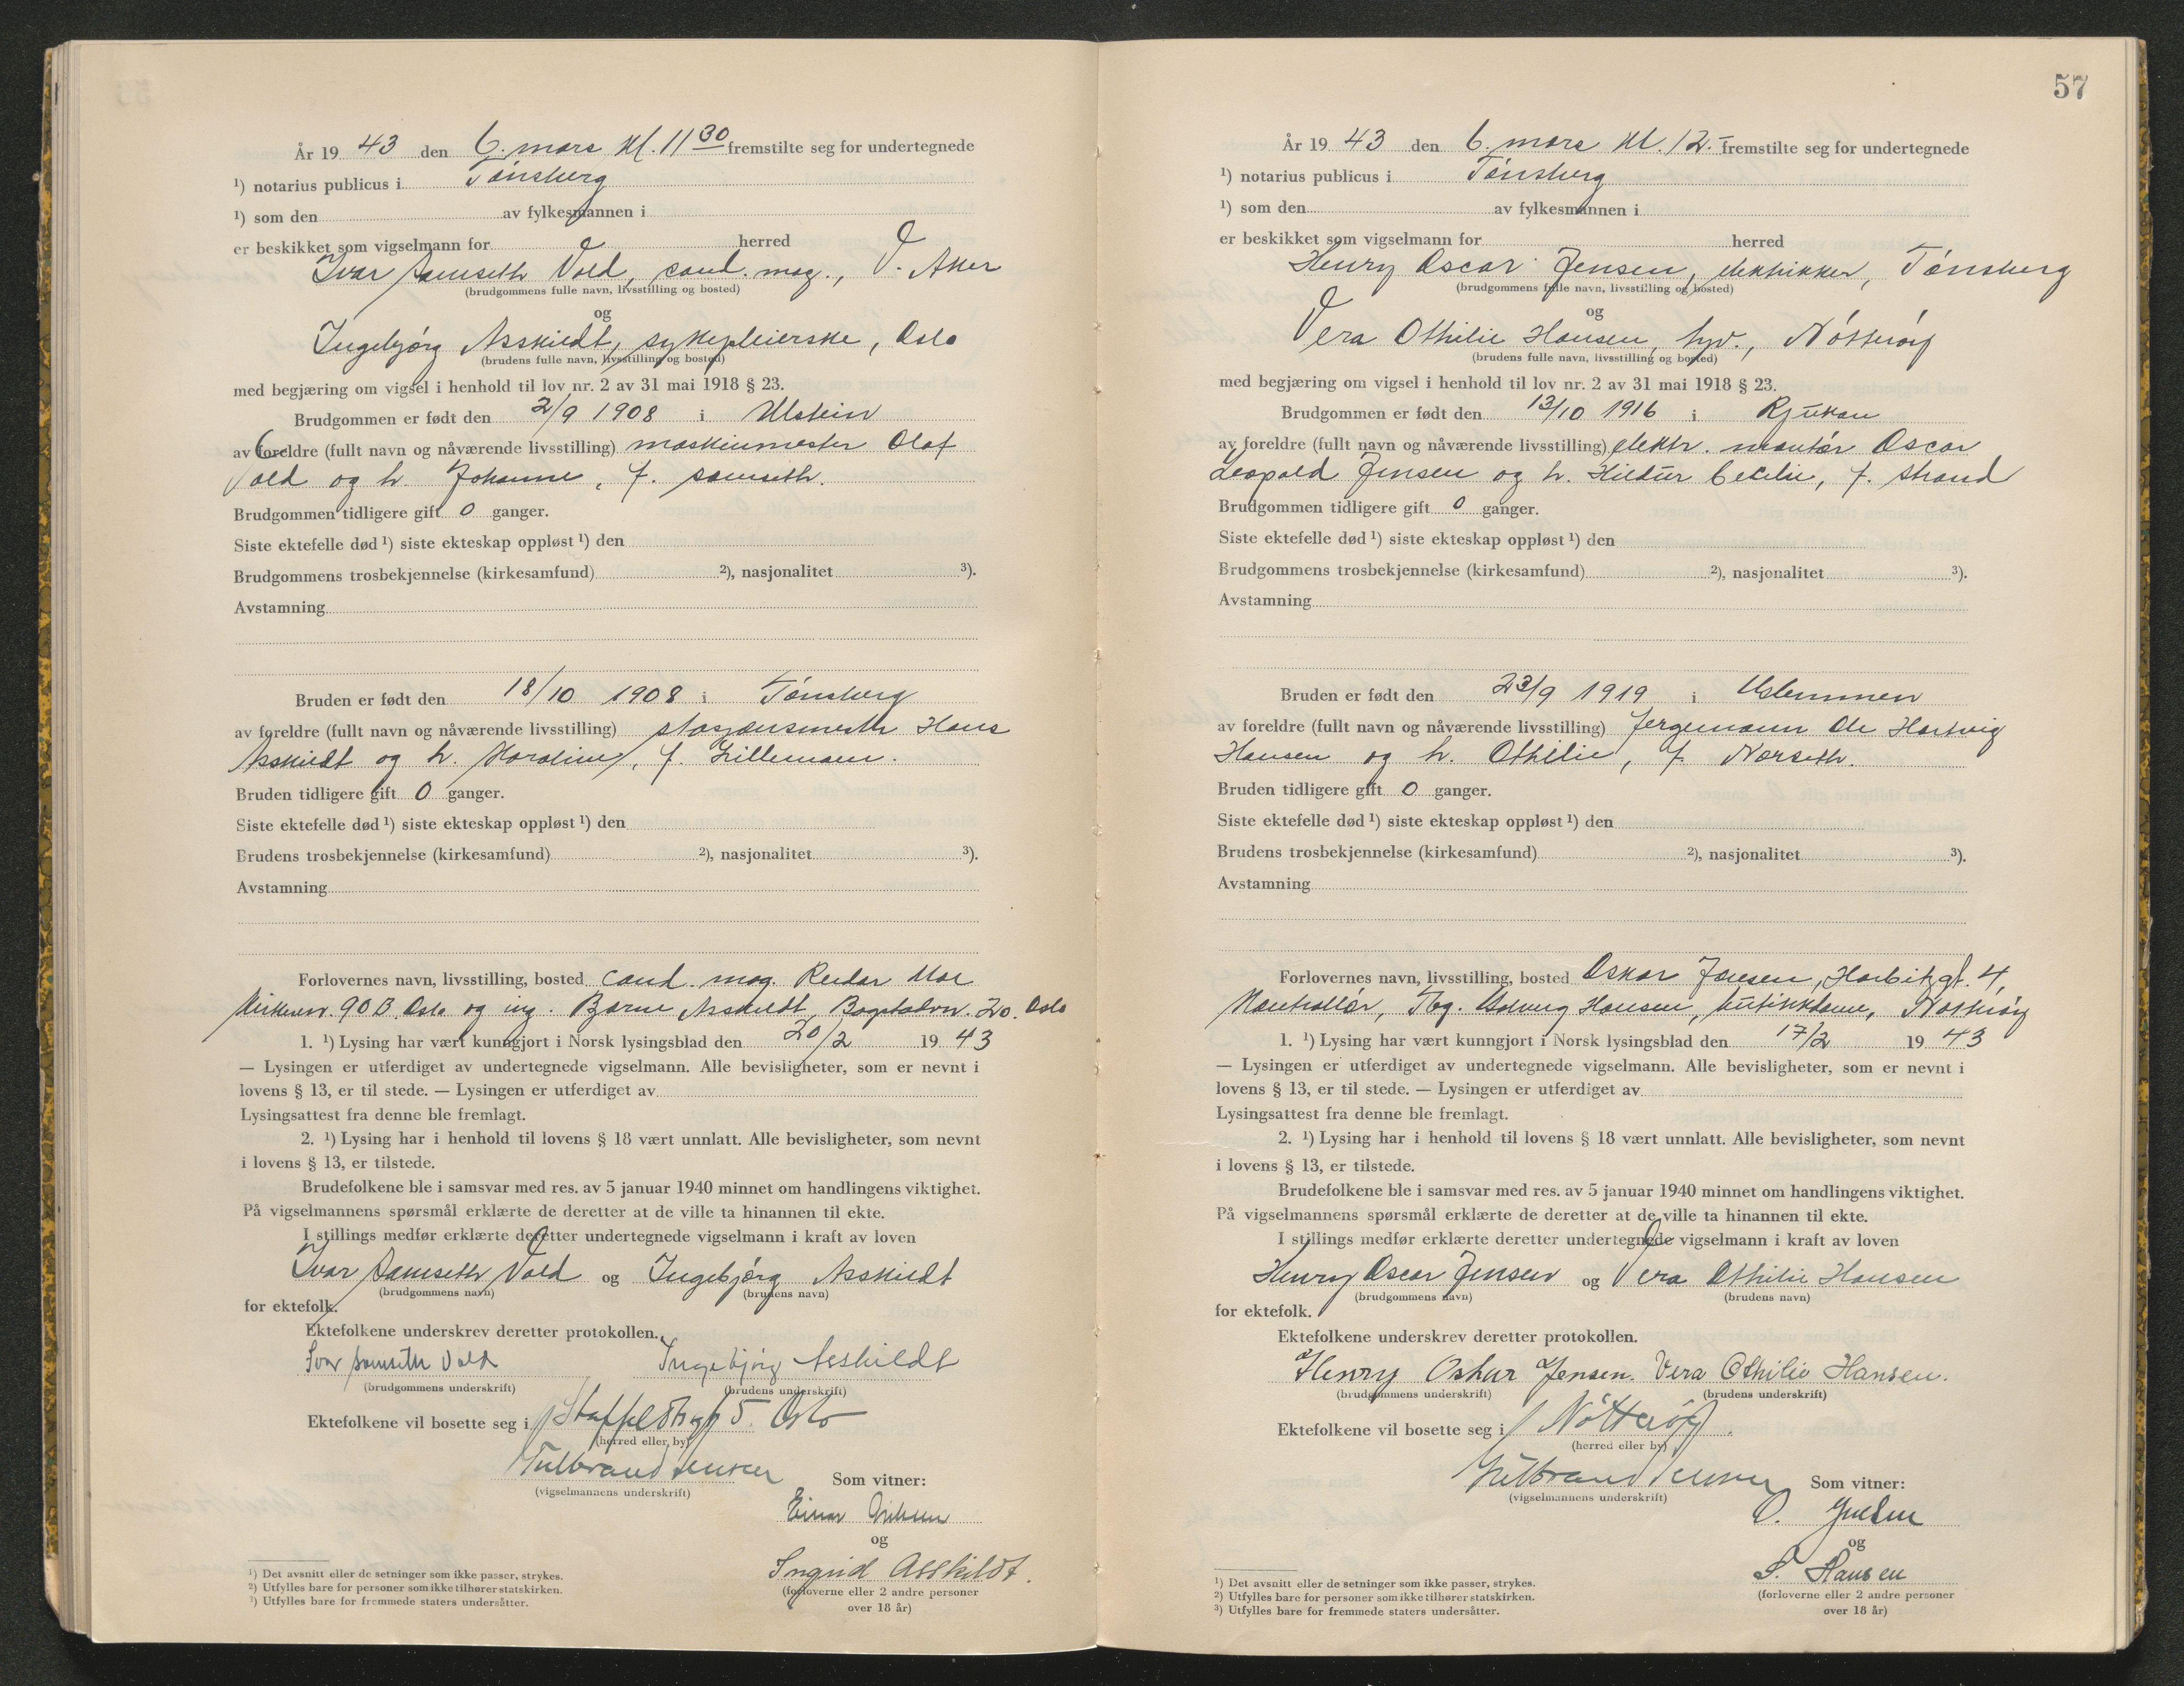 År 19 43 den 6. mars kl. 11 30 fremstilte seg for undertegnede
¹) notarius publicus i Tønsberg
¹) som den av fylkesmannen i
er beskikket som vigselmann for herred
Ivar Samseth Vold, cand. mag., V. Aker
(brudgommens fulle navn, livsstilling og bosted)
og
Ingebjørg Asskildt, sykepleierske, Oslo
(brudens fulle navn, livsstilling og bosted)
med begjæring om vigsel i henhold til lov nr. 2 av 31 mai 1918 § 23.
Brudgommen er født den 2/9 1908 i Ulstein
av foreldre (fullt navn og nåværende livsstilling) maskinmester Olaf
Vold og h. Johanne, f. Samseth.
Brudgommen tidligere gift 0 ganger.
Siste ektefelle død ¹) siste ekteskap oppløst ¹) den
Brudgommens trosbekjennelse (kirkesamfund) ²), nasjonalitet ³).
Avstamning
Bruden er født den 18/10 1908 i Tønsberg
av foreldre (fullt navn og nåværende livsstilling) stasjonsmester Hans
Asskildt og h. Karoline, f. Zillemann.
Bruden tidligere gift 0 ganger.
Siste ektefelle død ¹) siste ekteskap oppløst ¹) den
Brudens trosbekjennelse (kirkesamfund) ²), nasjonalitet ³).
Avstamning
Forlovernes navn, livsstilling, bosted cand. mag. Reidar
90 B, Oslo og ing. Bjarne Asskildt, Bogstadvn. 20. Oslo
1. ¹) Lysing har vært kunngjort i Norsk lysingsblad den 20/2 19 43
— Lysingen er utferdiget av undertegnede vigselmann. Alle bevisligheter, som er nevnt i
lovens § 13, er til stede. — Lysingen er utferdiget av
Lysingsattest fra denne ble fremlagt.
2. ¹) Lysing har i henhold til lovens § 18 vært unnlatt. Alle bevisligheter, som nevnt
i lovens § 13, er tilstede.
Brudefolkene ble i samsvar med res. av 5 januar 1940 minnet om handlingens viktighet.
På vigselmannens spørsmål erklærte de deretter at de ville ta hinannen til ekte.
I stillings medfør erklærte deretter undertegnede vigselmann i kraft av loven
Ivar Samseth Vold og Ingebjørg Asskildt
(brudgommens navn) (brudens navn)
for ektefolk.
Ektefolkene underskrev deretter protokollen.
Ivar Samseth Vold Ingebjørg Asskildt
(brudgommens underskrift) (brudens underskrift)
Ektefolkene vil bosette seg i 5 Oslo
(herred eller by)
Som vitner:
(vigselmannens underskrift)
Einar
og
Ingrid Asskildt.
(forloverne eller 2 andre personer
over 18 år)
¹) Det avsnitt eller de setninger som ikke passer, strykes.
²) Utfylles bare for personer som ikke tilhører statskirken.
³) Utfylles bare for fremmede staters undersåtter.
57
År 19 43 den 6. mars kl. 12.- fremstilte seg for undertegnede
¹) notarius publicus i Tønsberg
¹) som den av fylkesmannen i
er beskikket som vigselmann for herred
Henry Oscar Jensen, elektriker, Tønsberg
(brudgommens fulle navn, livsstilling og bosted)
og
Vera Othilie Hansen, hyd., Nøtterøy
(brudens fulle navn, livsstilling og bosted)
med begjæring om vigsel i henhold til lov nr. 2 av 31 mai 1918 § 23.
Brudgommen er født den 13/10 1916 i Rjukan
av foreldre (fullt navn og nåværende livsstilling) elektr. montør Oscar
Leopold Jensen og h. Hildur Cecilie, f. Strand
Brudgommen tidligere gift 0 ganger.
Siste ektefelle død ¹) siste ekteskap oppløst ¹) den
Brudgommens trosbekjennelse (kirkesamfund) ²), nasjonalitet ³).
Avstamning
Bruden er født den 23/9 1919 i Uslemmen
av foreldre (fullt navn og nåværende livsstilling) fergemann Ole Hartvig
Hansen og h. Othilie, f. Norseth.
Bruden tidligere gift 0 ganger.
Siste ektefelle død ¹) siste ekteskap oppløst ¹) den
Brudens trosbekjennelse (kirkesamfund) ²), nasjonalitet ³).
Avstamning
Forlovernes navn, livsstilling, bosted Oskar Jensen, Harbitzgt. 4,
kontrollør, Tbg. Hansen, butikkdame, Nøtterøy
1. ¹) Lysing har vært kunngjort i Norsk lysingsblad den 17/2 19 43
— Lysingen er utferdiget av undertegnede vigselmann. Alle bevisligheter, som er nevnt i
lovens § 13, er til stede. — Lysingen er utferdiget av
Lysingsattest fra denne ble fremlagt.
2. ¹) Lysing har i henhold til lovens § 18 vært unnlatt. Alle bevisligheter, som nevnt
i lovens § 13, er tilstede.
Brudefolkene ble i samsvar med res. av 5 januar 1940 minnet om handlingens viktighet.
På vigselmannens spørsmål erklærte de deretter at de ville ta hinannen til ekte.
I stillings medfør erklærte deretter undertegnede vigselmann i kraft av loven
Henry Oscar Jensen og Vera Othilie Hansen
(brudgommens navn) (brudens navn)
for ektefolk.
Ektefolkene underskrev deretter protokollen.
Henry Oskar Jensen. Vera Othilie Hansen.
(brudgommens underskrift) (brudens underskrift)
Ektefolkene vil bosette seg i Nøtterøy.
(herred eller by)
Som vitner:
(vigselmannens underskrift)
O. Jensen
og
S. Hansen
(forloverne eller 2 andre personer
over 18 år)
¹) Det avsnitt eller de setninger som ikke passer, strykes.
²) Utfylles bare for personer som ikke tilhører statskirken.
³) Utfylles bare for fremmede staters undersåtter.